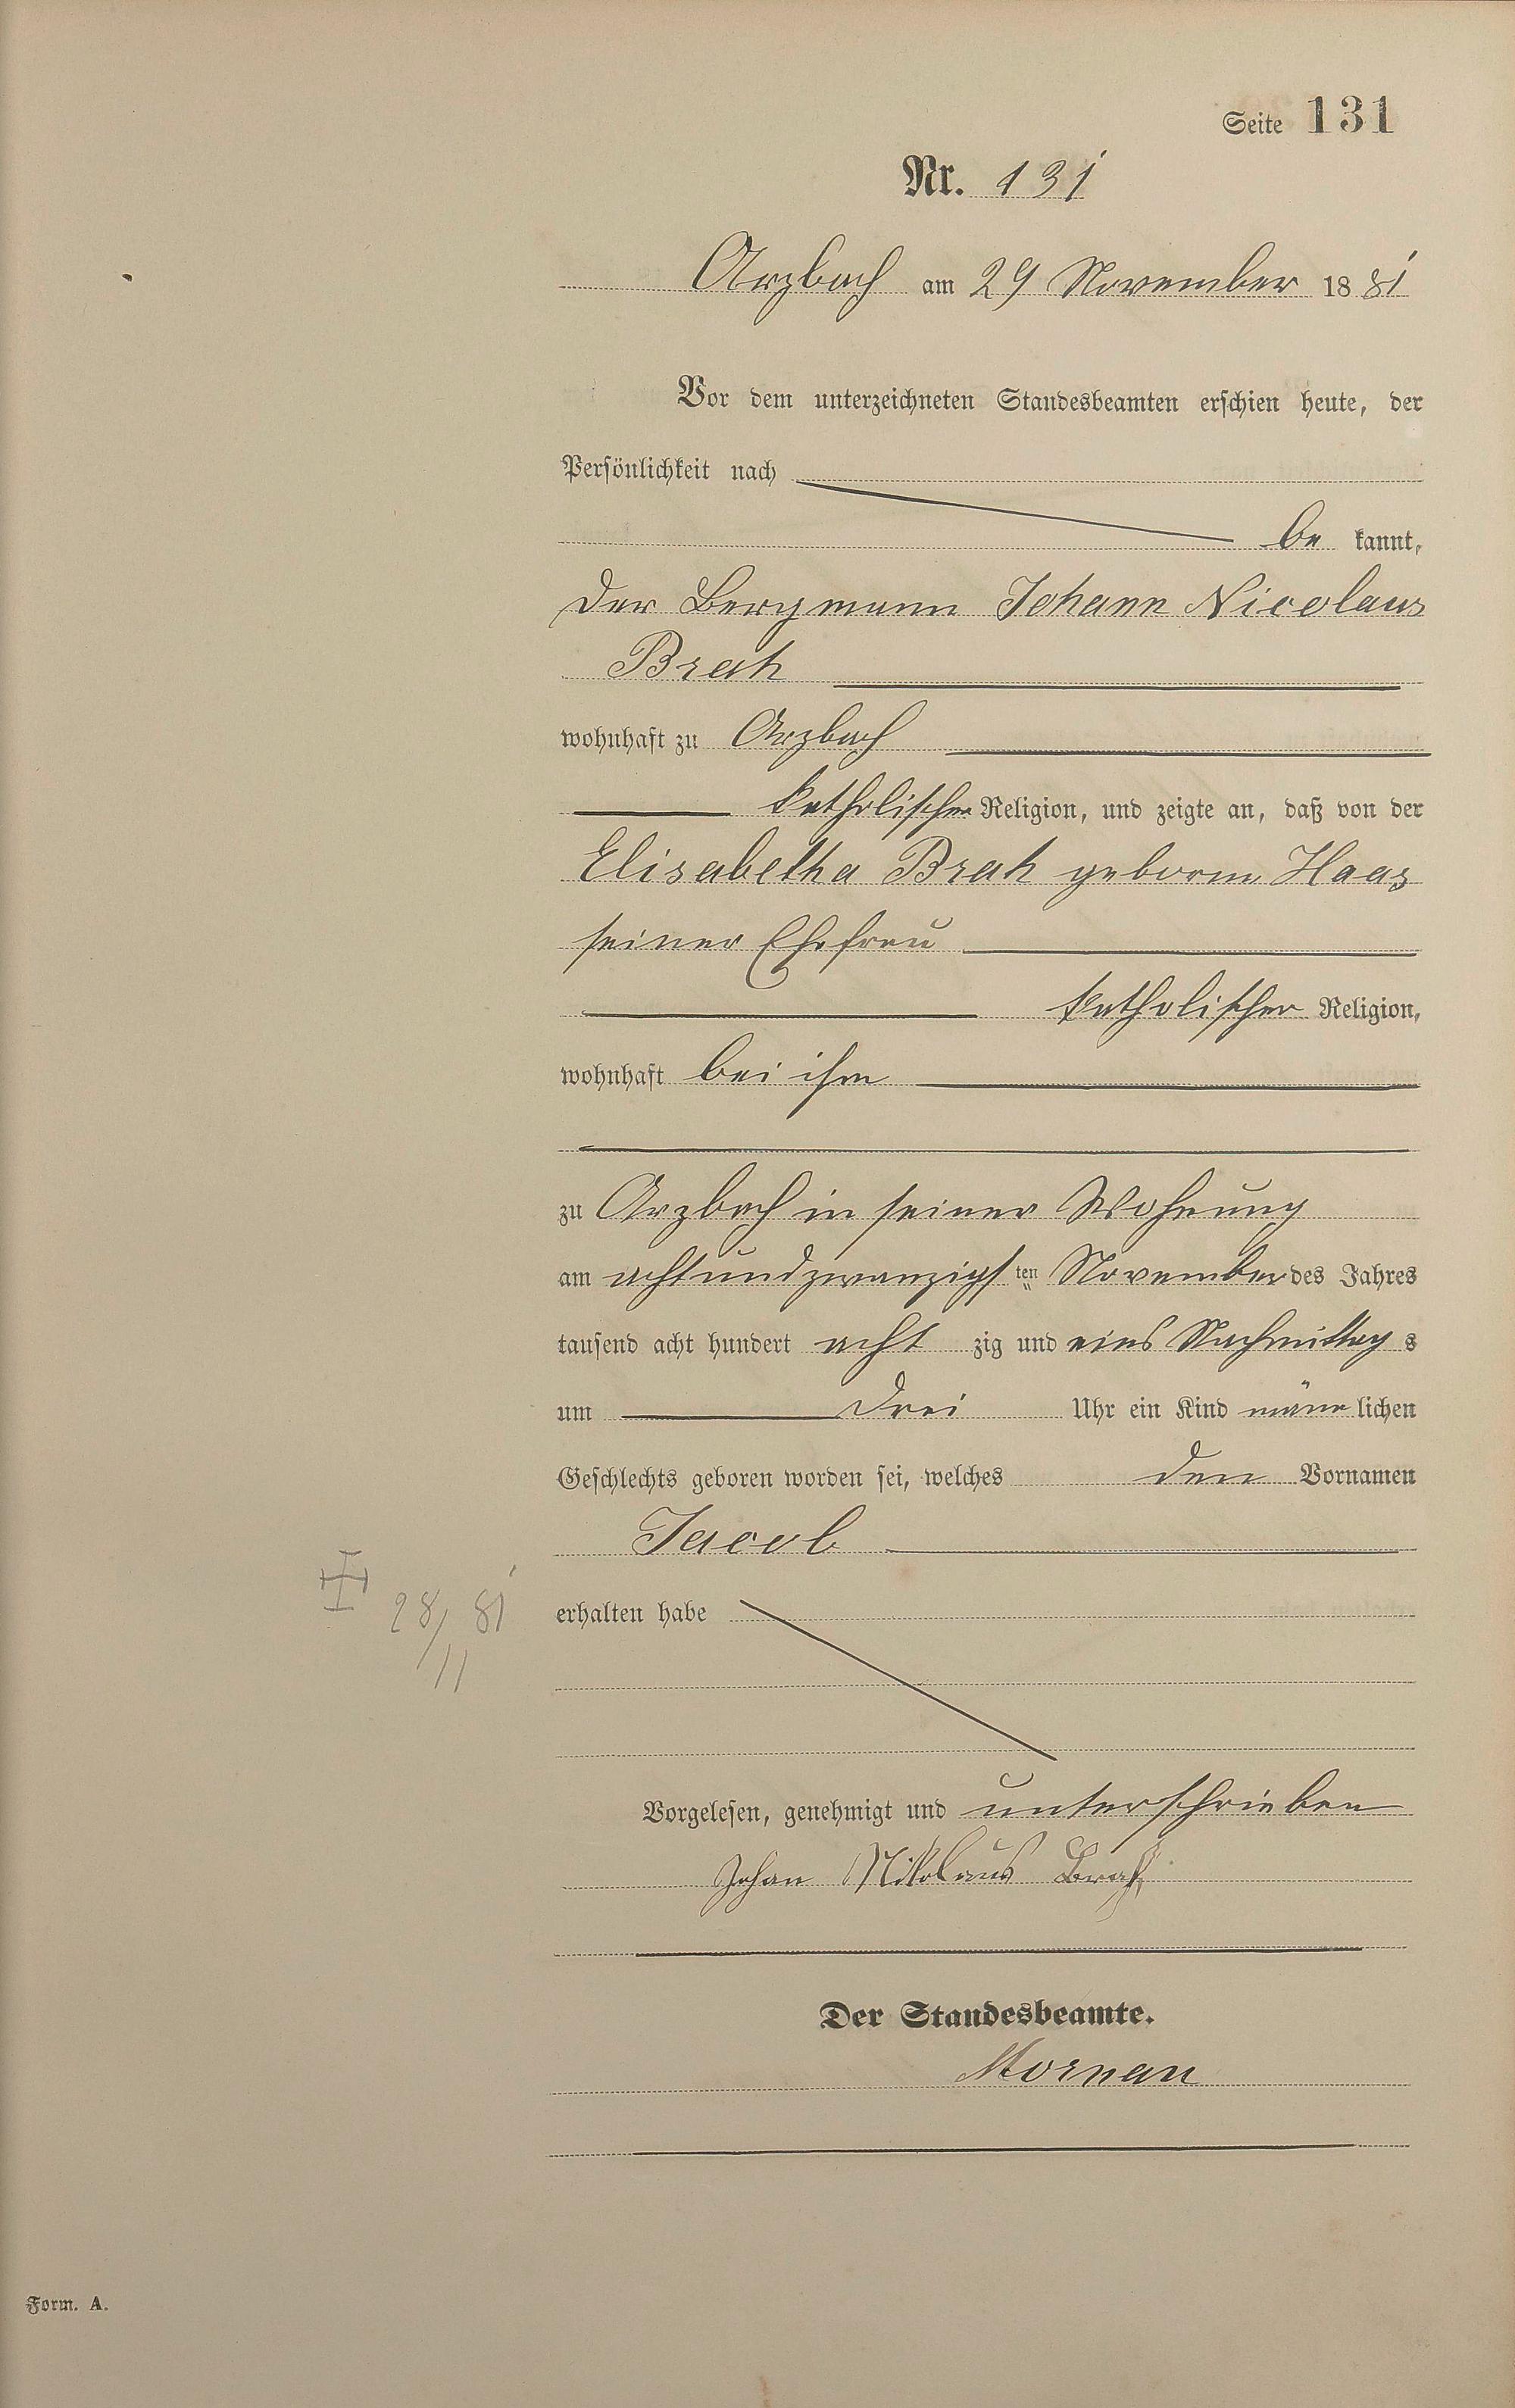 Seite 131
Nr. 131
Arzbach am 29 November 1881
Vor dem unterzeichneten Standesbeamten erschien heute, der
Persönlichkeit nach
be kannt,
der Bergmann Johann Nicolaus
Brah
wohnhaft zu Arzbach
katholischer Religion, und zeigte an, daß von der
Elisabetha Brah geborne Haas
seiner Ehefrau
katholischer Religion,
wohnhaft bei ihm
zu Arzbach in seiner Wohnung
am achtundzwanzigsten November des Jahres
tausend acht hundert acht zig und eins Nachmittags
um drei Uhr ein Kind männlichen
Geschlechts geboren worden sei, welches den Vornamen
Jacob
28/11 81
erhalten habe
Vorgelesen, genehmigt und unterschrieben
Johan Nikolaus Brah
Der Standesbeamte.
Form. A.